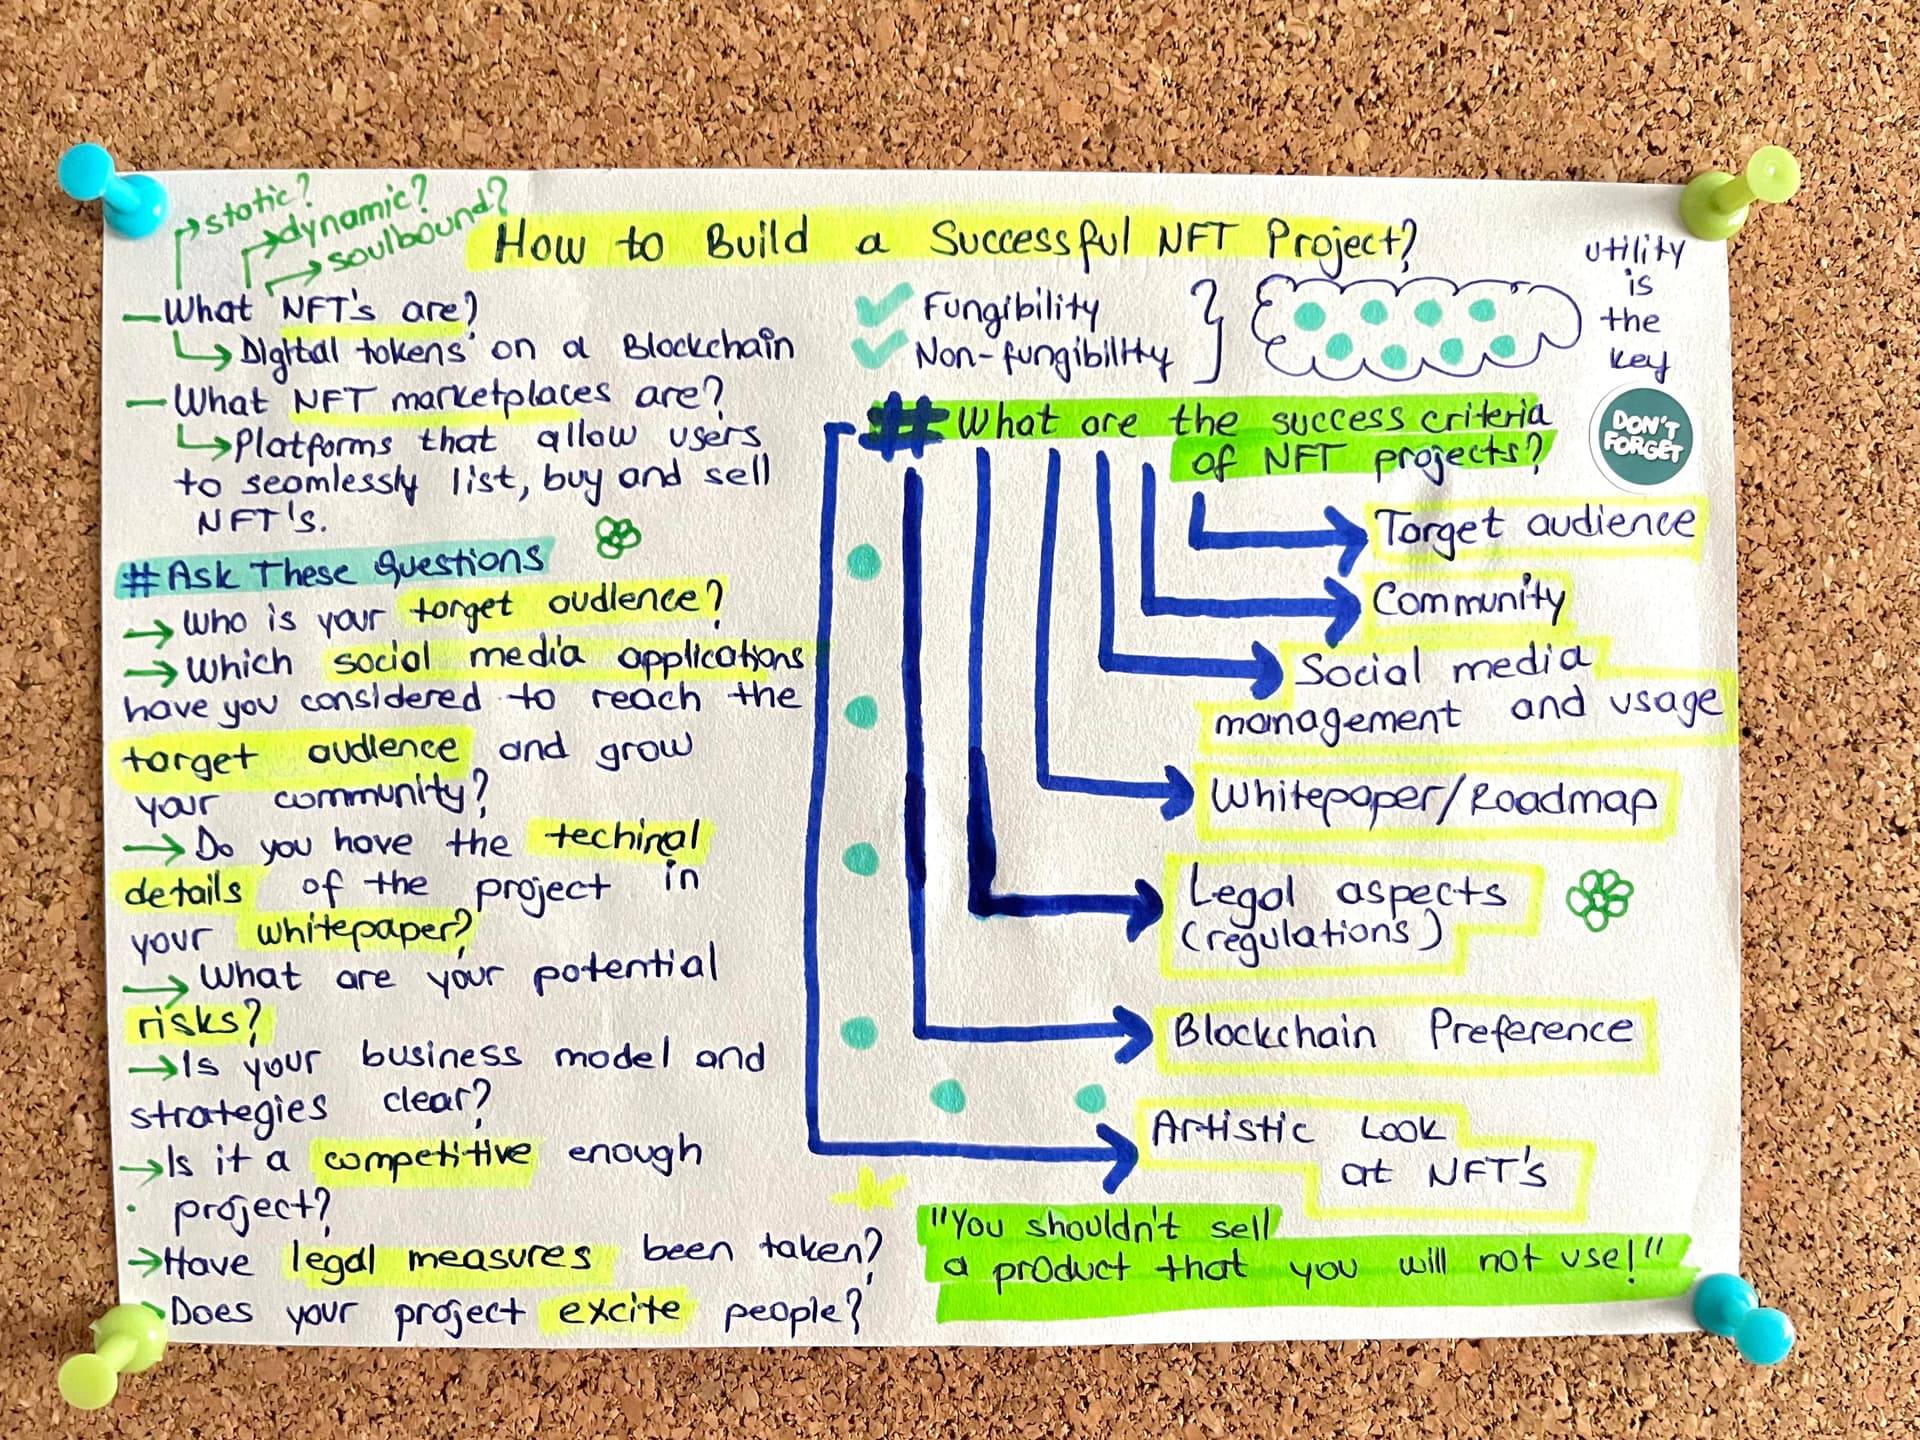 static?
dynamic?
soulbound?
How to Build a Successful NFT Project?
utility
is
the
key
DON'T
FORGET
— What NFT's are?
Digital tokens on a Blockchain
— What NFT marketplaces are?
Platforms that allow users
to seamlessly list, buy and sell
NFT's.
# Ask These Questions
Who is your target audience?
Which social media applications
have you considered to reach the
target audience and grow
your community?
Do you have the techinal
details of the project in
your whitepaper?
What are your potential
risks?
Is your business model and
strategies clear?
Is it a competitive enough
project?
Have legal measures been taken?
Does your project excite people?
Fungibility
Non-fungibility
# What are the success criteria
of NFT projects?
Target audience
Community
Social media
management and usage
Whitepaper/Roadmap
Legal aspects
(regulations)
Blockchain Preference
Artistic Look
at NFT's
"You shouldn't sell
a product that you will not use!"